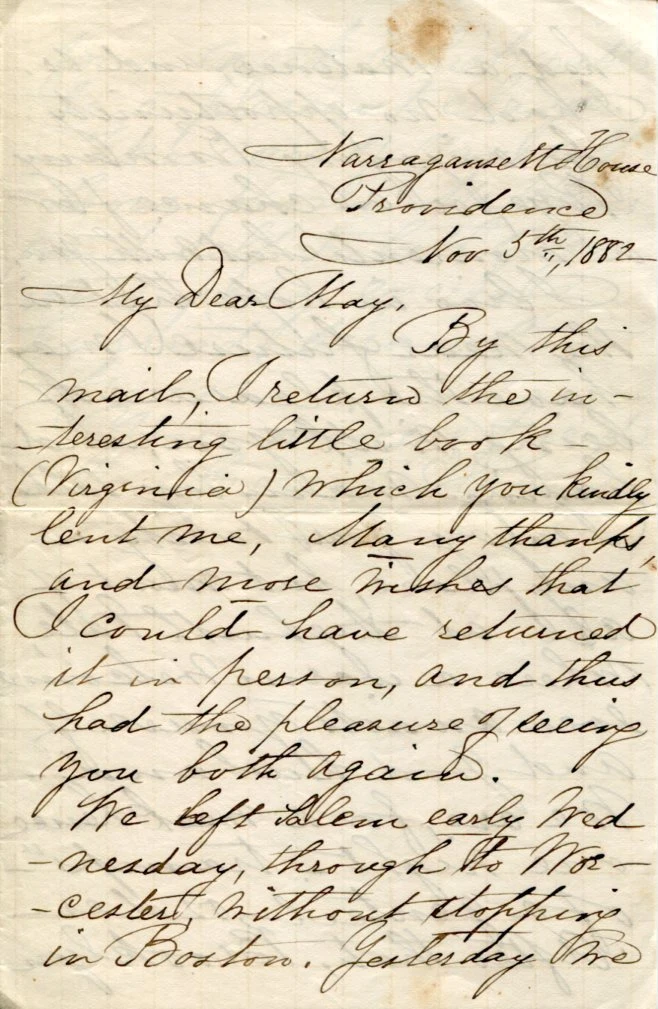 Narragansett House
Providence
Nov 5th, 1882
My Dear May,
By this
mail, I return the in-
teresting little book-
(Virginia) which you kindly
lent me, Many thanks,
and more wishes that
I could have returned
it in person, and thus
had the pleasure of seeing
you both again.
We left Salem early Wed
-nesday, through to Wor-
-cester, without stopping
in Boston. Yesterday we